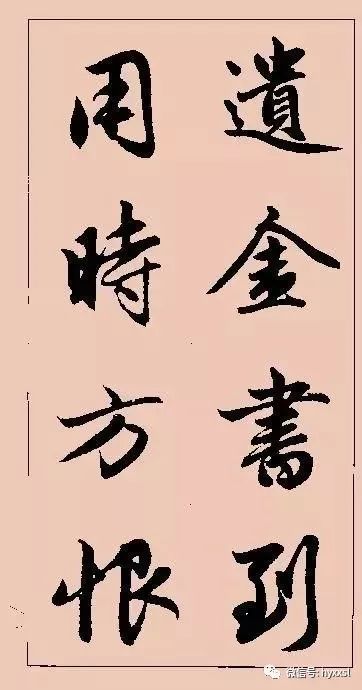 遺金書到
用時方恨
微信号: hyxxsl